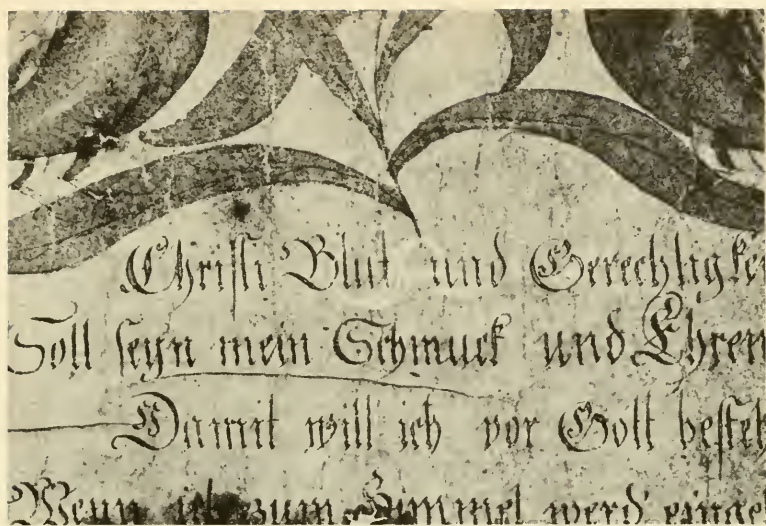 Christi Blut und Gerechtigkei
Soll seyn mein Schmuck und Ehren
Damit will ich vor Gott besteh
Wenn ich zum Himmel werd' eingeh